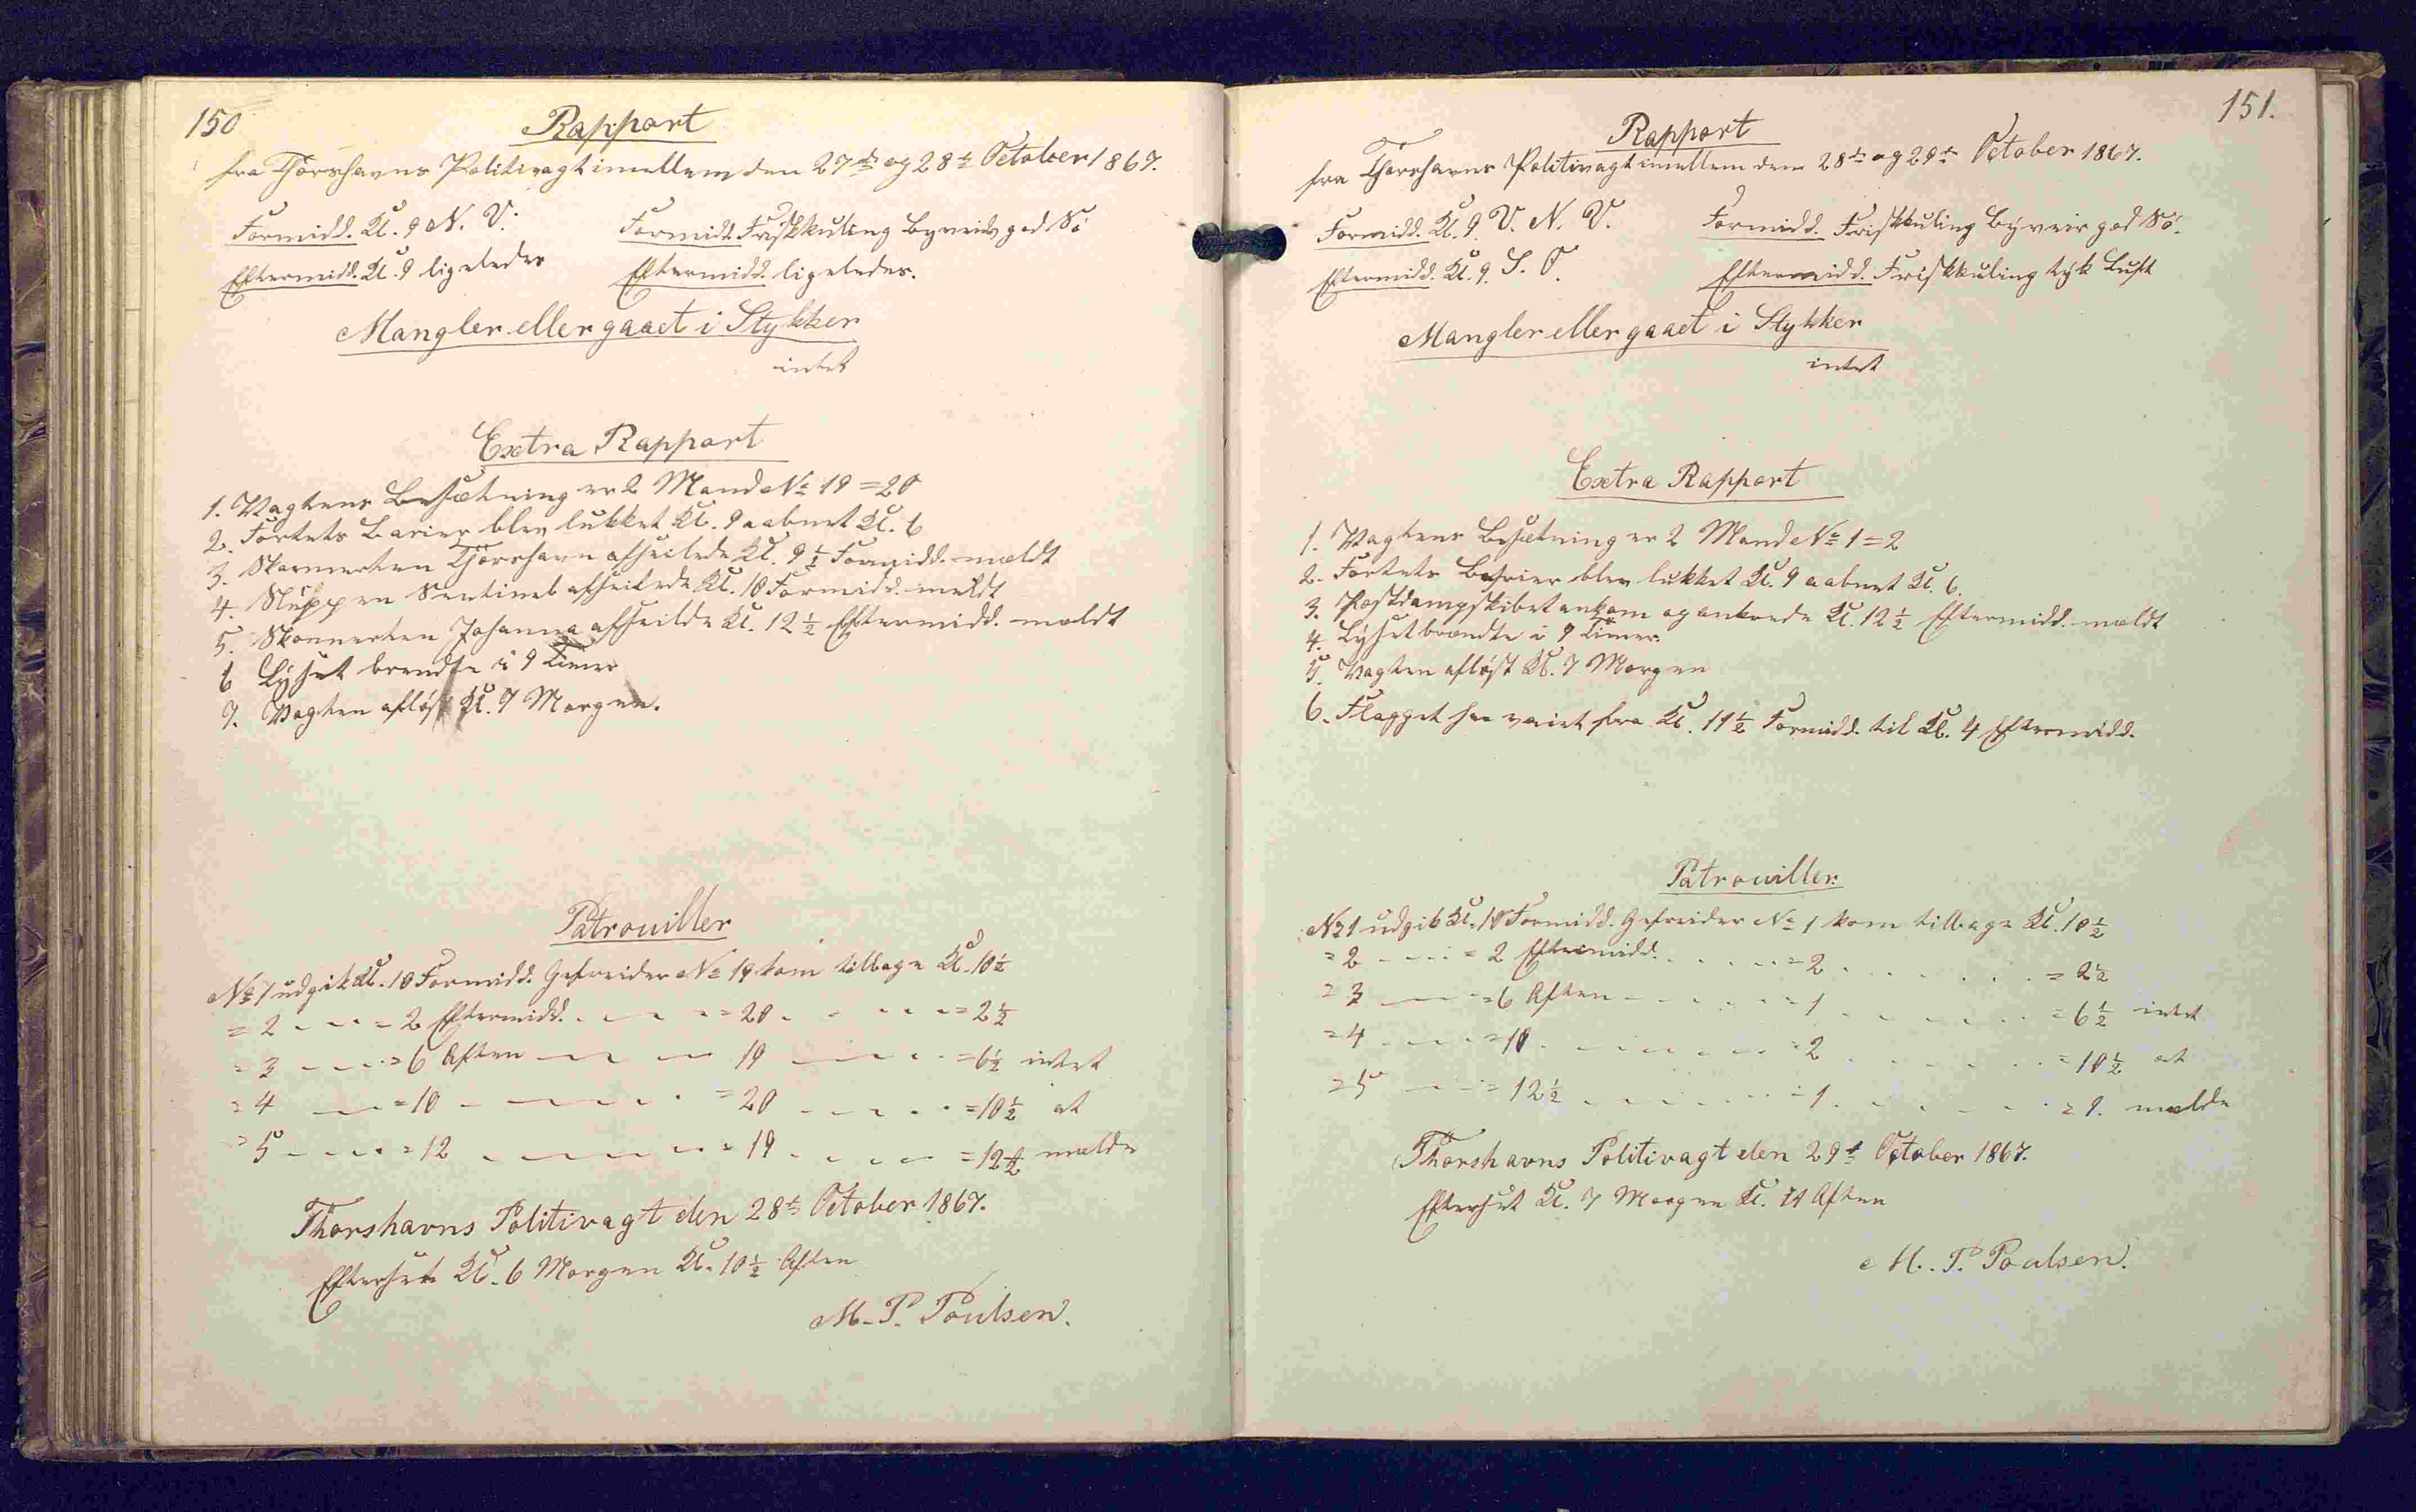 150
Rapport
fra Thorshavns Politivagt imellem den 27de og 28de October 1867.
Formidd. Kl. 9 N. V. Formidd. Friskkuling Byveir god Sö
Eftermidd. Kl. 9 ligeledes Eftermidd. ligeledes.
Mangler eller gaaet i Stykker
intet
Extra Rapport
1. Vagtens Besætning er 2 Mand No 19 = 20
2. Fortets Barier blev lukket Kl. 9 aabnet Kl. 6
3. Skonnerten Thorshavn afseilede Kl. 9 1/2 Formidd. meldt
4. Sluppen Sentinel afseilede Kl. 10 Formidd. meldt
5. Skonnerten Johanna afseilde Kl. 12 1/2 Eftermidd. meldt
6 Lyset brendte i 9 Timer
7. Vagten aflöst Kl. 7 Morgen.
Patrouiller
No 1 udgik Kl. 10 Formidd. Gefreider No 19 kom tilbage Kl. 10 1/2
= 2 - - - = 2 Eftermidd. - - - = 20 - - - = 2 1/2
= 3 - - - = 6 Aften - - - 19 - - - = 6 1/2 intet
= 4 - - = 10 - - - - = 20 - - - = 10 1/2 at
= 5 - - - = 12 - - - - = 19 - - - = 12 1/2 melde
Thorshavns Politivagt den 28de October 1867.
Efterset Kl. 6 Morgen Kl. 10 1/2 Aften
M. P. Poulsen.
151.
Rapport
fra Thorshavns Politivagt imellem den 28de og 29de October 1867.
Formidd. Kl. 9 V. N. V. Formidd. Friskkuling Byveir god Sö.
Eftermidd. Kl. 9. S. O. Eftermidd. Friskkuling tyk Luft
Mangler eller gaaet i Stykker
intet
Extra Rapport
1. Vagtens Besætning er 2 Mand No 1 = 2
2. Fortets Barier blev lukket Kl. 9 aabnet Kl. 6.
3. Postdampskibet ankom og ankrede Kl. 12 1/2 Eftermidd. meldt
4. Lyset brændte i 9 Timer.
5. Vagten aflöst Kl. 7 Morgen
6. Flagget har vaiet fra Kl. 11 1/2 Formidd. til Kl. 4 Eftermidd.
Patrouiller.
No 1 udgik Kl. 10 Formidd. Gefreider No 1 kom tilbage Kl. 10 1/2
= 2 - - - = 2 Eftermidd. - - - = 2 - - - = 2 1/2
= 3 - - - = 6 Aften - - - = 1 - - - = 6 1/2 intet
= 4 - - - = 10 - - - - = 2 - - - = 10 1/2 at
= 5 - - - = 12 1/2 - - - = 1 - - - = 1. melde
Thorshavns Politivagt den 29de October 1867.
Efterset Kl. 7 Morgen Kl. 11 Aften
M. P. Poulsen.